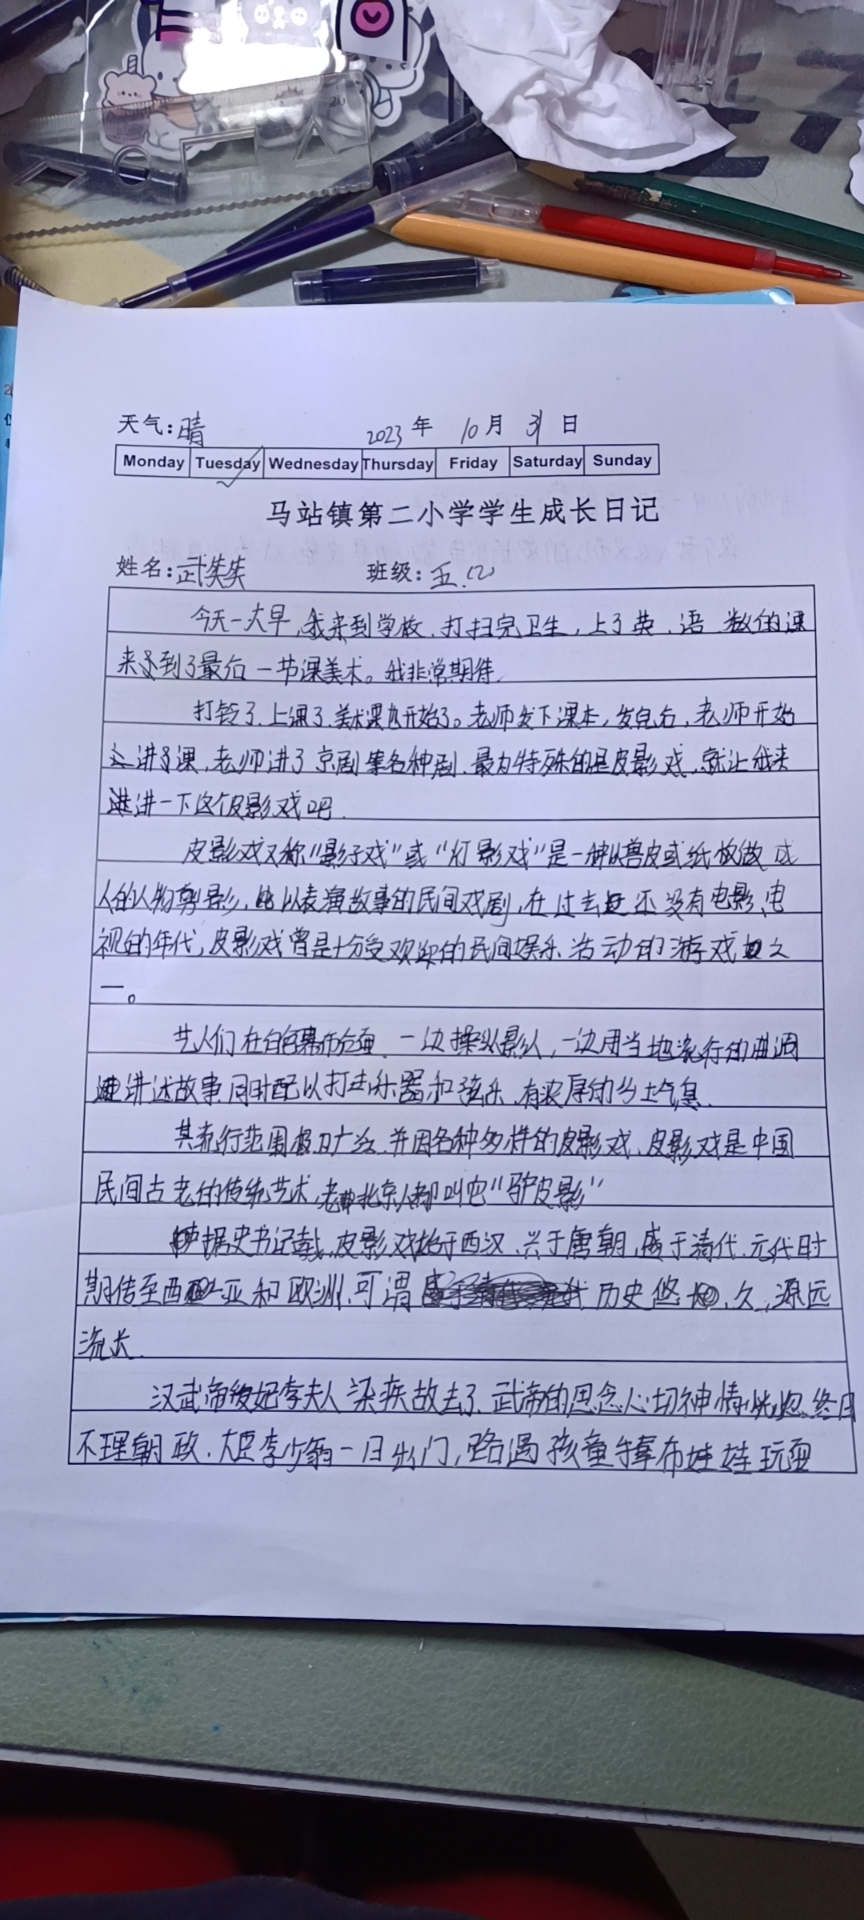 天气:晴 2023年 10月 31日
Monday Tuesday Wednesday Thursday Friday Saturday Sunday
马站镇第二小学学生成长日记
姓名:武 班级:五.(2)
今天一大早,我来到学校,打扫完卫生,上了英、语、数的课
来到了最后一节课美术。我非常期待,
打铃了,上课了,美术课开始了。老师发下课本,发完后,老师开始
讲课,老师讲了京剧等各种剧,最为特殊的是皮影戏,就让我来
讲一下这个皮影戏吧,
皮影戏又称“影子戏”或“灯影戏”是一种以兽皮或纸板做成
人的人物剪影,以表演故事的民间戏剧,在过去还没有电影、电
视的年代,皮影戏曾是十分受欢迎的民间娱乐活动的游戏之
一。
艺人们在白色幕布后面,一边操纵影人,一边用当地流行的曲调
讲述故事同时配以打击乐器和弦乐,有浓厚的乡土气息,
其流行范围极为广泛,并因各种多样的皮影戏,皮影戏是中国
民间古老的传统艺术,老北京人都叫它“驴皮影”
据史书记载,皮影戏始于西汉,兴于唐朝,盛于清代,元代时
期传至西亚和欧洲,可谓历史悠久,源远
流长,
汉武帝爱妃李夫人染疾故去了,武帝的思念心切神情恍惚,终日
不理朝政,大臣李少翁一日出门,路遇孩童手拿布娃娃玩耍